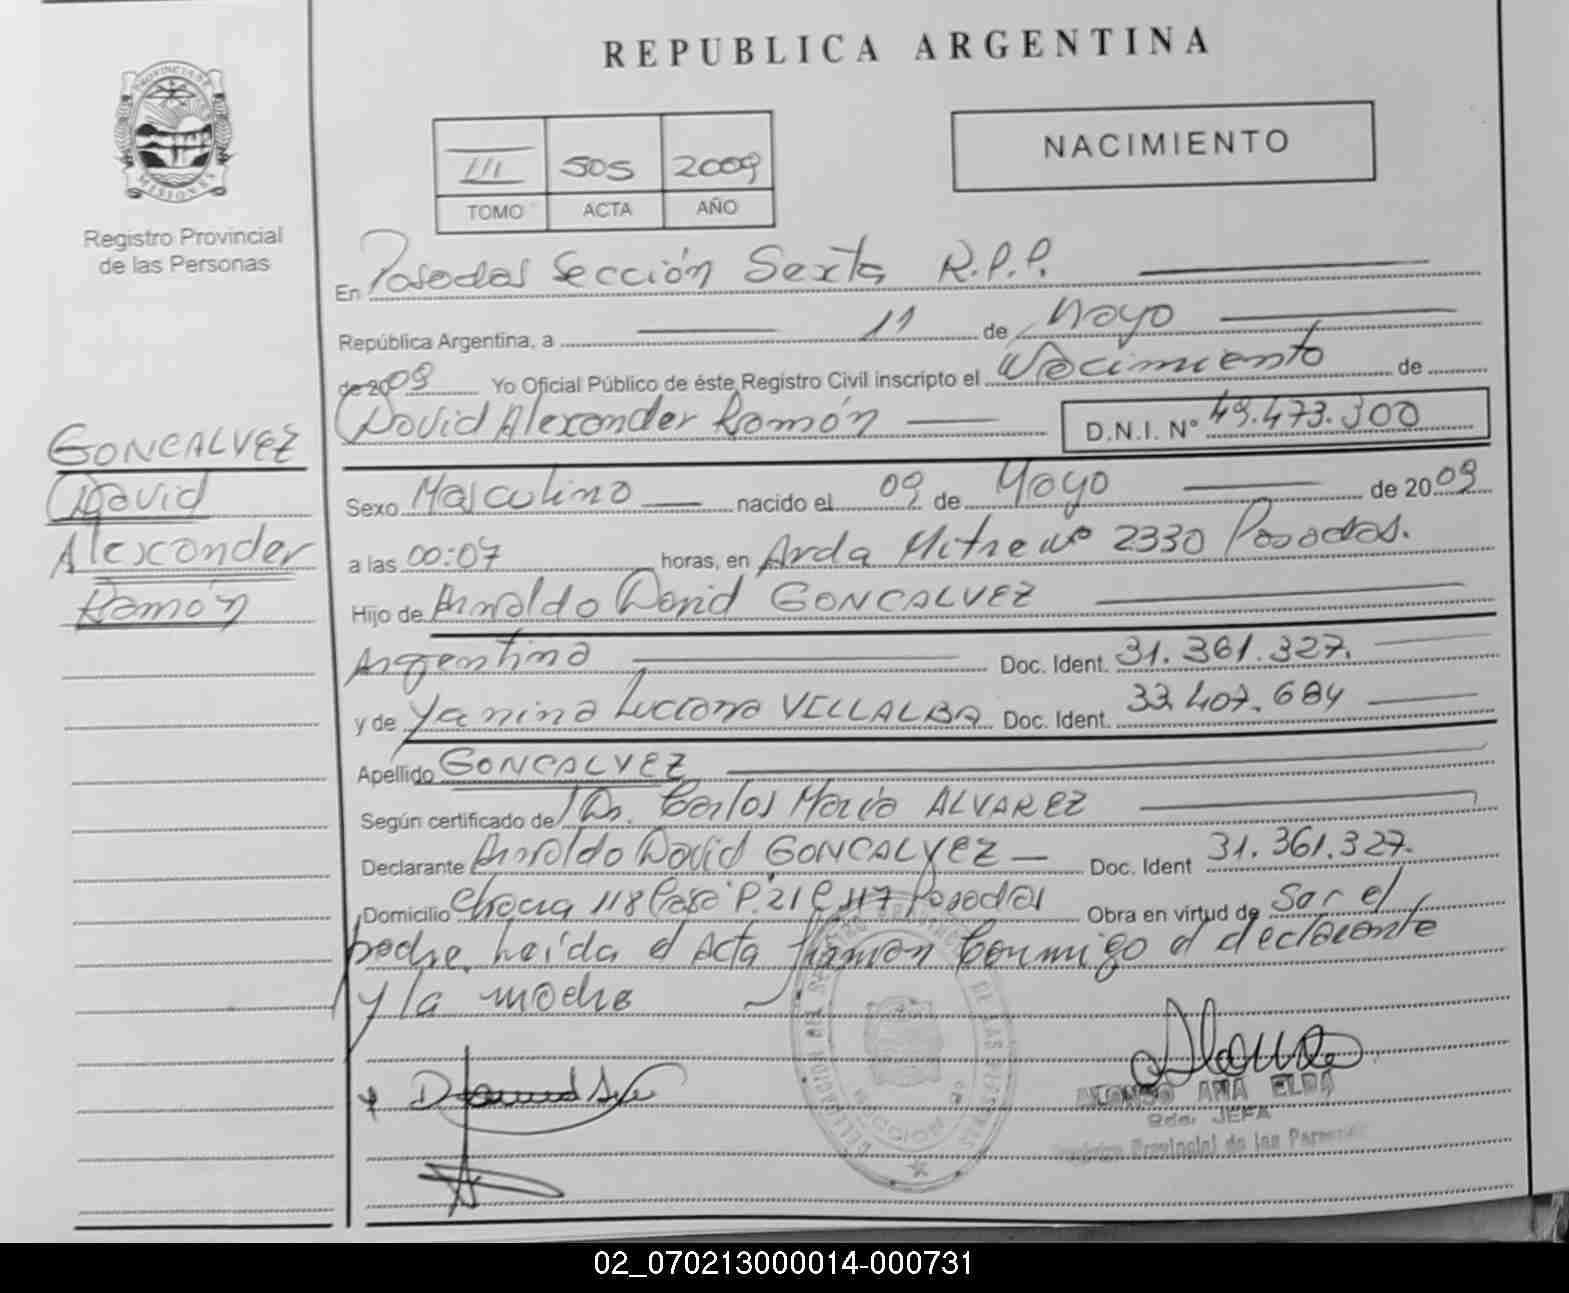 REPUBLICA ARGENTINA
PROVINCIA DE
MISIONES
Registro Provincial
de las Personas
III 505 2009
TOMO ACTA AÑO
NACIMIENTO
En Posadas Sección Sexta R.P.P.
República Argentina, a 11 de Mayo
de 2009 Yo Oficial Público de éste Registro Civil inscripto el Nacimiento de
David Alexander Ramón D.N.I. Nº 49.473.300
GONCALVEZ
David
Alexander
Ramón
Sexo Masculino nacido el 09 de Mayo de 2009
a las 00:07 horas, en Avda Mitre Nº 2330 Posadas.
Hijo de Arnaldo David GONCALVEZ
Argentina Doc. Ident. 31.361.327.
y de Yanina Luciana VILLALBA Doc. Ident. 33.407.684
Apellido GONCALVEZ
Según certificado de Dr. Carlos María ALVAREZ
Declarante Arnaldo David GONCALVEZ Doc. Ident 31.361.327.
Domicilio Chacra 118 Casa P.21 C 117 Posadas Obra en virtud de Ser el
padre. Leída el Acta firman conmigo el declarante
y la madre
ALONSO ANA ELDA
JEFA
Registro Provincial de las Personas
02_070213000014-000731